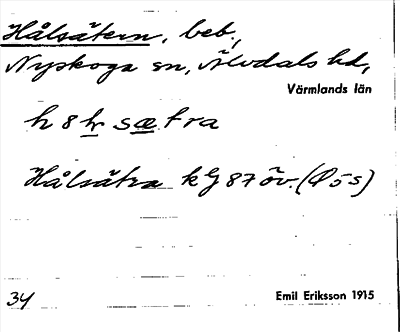 Hålsätern, beb.,
Nyskoga sn, Älvdals hd,
Värmlands län
h 8 hr sæ tra
Hålsätra kG 87 öv. (Ø 5 s)
34 Emil Eriksson 1915